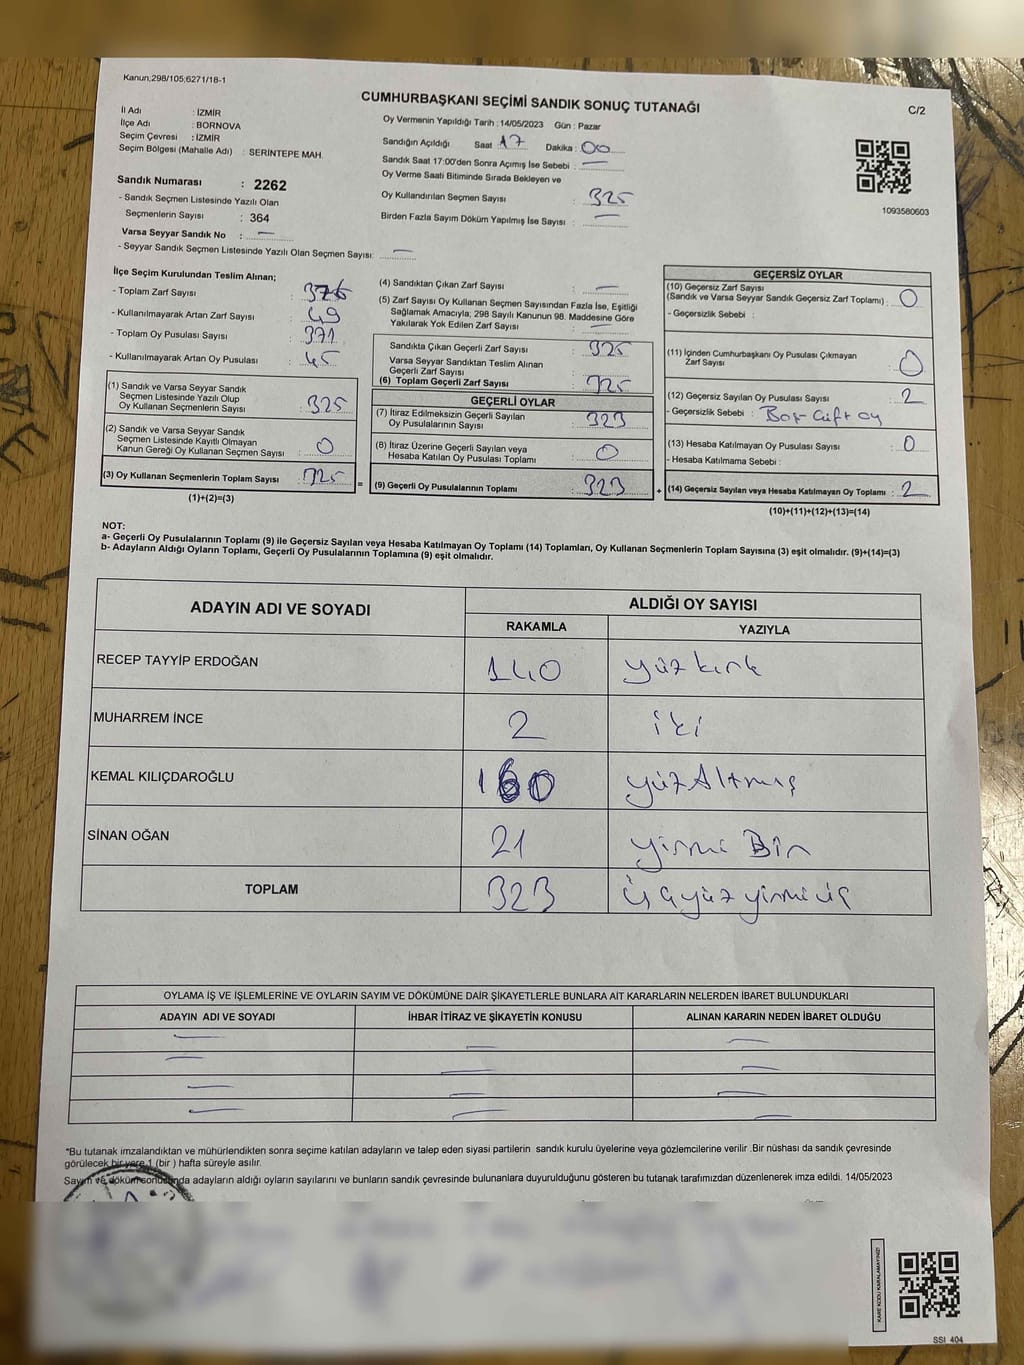 Kanun;298/105;6271/18-1
CUMHURBAŞKANI SEÇİMİ SANDIK SONUÇ TUTANAĞI
C/2
İl Adı : İZMİR
İlçe Adı : BORNOVA
Seçim Çevresi : İZMİR
Seçim Bölgesi (Mahalle Adı) : SERİNTEPE MAH.
Sandık Numarası : 2262
- Sandık Seçmen Listesinde Yazılı Olan
Seçmenlerin Sayısı : 364
Varsa Seyyar Sandık No : —
- Seyyar Sandık Seçmen Listesinde Yazılı Olan Seçmen Sayısı: —
Oy Vermenin Yapıldığı Tarih : 14/05/2023 Gün : Pazar
Sandığın Açıldığı Saat 17 Dakika : 00
Sandık Saat 17:00'den Sonra Açımış İse Sebebi : —
Oy Verme Saati Bitiminde Sırada Bekleyen ve
Oy Kullandırılan Seçmen Sayısı : 325
Birden Fazla Sayım Döküm Yapılmış İse Sayısı : —
1093580603
İlçe Seçim Kurulundan Teslim Alınan;
- Toplam Zarf Sayısı :
- Kullanılmayarak Artan Zarf Sayısı : 49
- Toplam Oy Pusulası Sayısı : 371
- Kullanılmayarak Artan Oy Pusulası : 45
(1) Sandık ve Varsa Seyyar Sandık
Seçmen Listesinde Yazılı Olup
Oy Kullanan Seçmenlerin Sayısı : 325
(2) Sandık ve Varsa Seyyar Sandık
Seçmen Listesinde Kayıtlı Olmayan
Kanun Gereği Oy Kullanan Seçmen Sayısı : 0
(3) Oy Kullanan Seçmenlerin Toplam Sayısı : 325
(1)+(2)=(3)
(4) Sandıktan Çıkan Zarf Sayısı : —
(5) Zarf Sayısı Oy Kullanan Seçmen Sayısından Fazla İse, Eşitliği
Sağlamak Amacıyla, 298 Sayılı Kanunun 98. Maddesine Göre
Yakılarak Yok Edilen Zarf Sayısı : —
Sandıkta Çıkan Geçerli Zarf Sayısı : 325
Varsa Seyyar Sandıktan Teslim Alınan
Geçerli Zarf Sayısı :
(6) Toplam Geçerli Zarf Sayısı : 325
GEÇERLİ OYLAR
(7) İtiraz Edilmeksizin Geçerli Sayılan
Oy Pusulalarının Sayısı : 323
(8) İtiraz Üzerine Geçerli Sayılan veya
Hesaba Katılan Oy Pusulası Toplamı : 0
= (9) Geçerli Oy Pusulalarının Toplamı : 323
GEÇERSİZ OYLAR
(10) Geçersiz Zarf Sayısı
(Sandık ve Varsa Seyyar Sandık Geçersiz Zarf Toplamı) : 0
- Geçersizlik Sebebi :
(11) İçinden Cumhurbaşkanı Oy Pusulası Çıkmayan
Zarf Sayısı : 0
(12) Geçersiz Sayılan Oy Pusulası Sayısı : 2
- Geçersizlik Sebebi : Boş-Çift oy
(13) Hesaba Katılmayan Oy Pusulası Sayısı : 0
- Hesaba Katılmama Sebebi :
+ (14) Geçersiz Sayılan veya Hesaba Katılmayan Oy Toplamı : 2
(10)+(11)+(12)+(13)=(14)
NOT:
a- Geçerli Oy Pusulalarının Toplamı (9) ile Geçersiz Sayılan veya Hesaba Katılmayan Oy Toplamı (14) Toplamları, Oy Kullanan Seçmenlerin Toplam Sayısına (3) eşit olmalıdır. (9)+(14)=(3)
b- Adayların Aldığı Oyların Toplamı, Geçerli Oy Pusulalarının Toplamına (9) eşit olmalıdır.
ADAYIN ADI VE SOYADI ALDIĞI OY SAYISI
RAKAMLA YAZIYLA
RECEP TAYYİP ERDOĞAN 140 yüz kırk
MUHARREM İNCE 2 iki
KEMAL KILIÇDAROĞLU 160 yüz Altmış
SİNAN OĞAN 21 yirmi Bir
TOPLAM 323 Üçyüz yirmi üç
OYLAMA İŞ VE İŞLEMLERİNE VE OYLARIN SAYIM VE DÖKÜMÜNE DAİR ŞİKAYETLERLE BUNLARA AİT KARARLARIN NELERDEN İBARET BULUNDUKLARI
ADAYIN ADI VE SOYADI İHBAR İTİRAZ VE ŞİKAYETİN KONUSU ALINAN KARARIN NEDEN İBARET OLDUĞU
— — —
— — —
— — —
— — —
*Bu tutanak imzalandıktan ve mühürlendikten sonra seçime katılan adayların ve talep eden siyasi partilerin sandık kurulu üyelerine veya gözlemcilerine verilir .Bir nüshası da sandık çevresinde
görülecek bir yere 1 (bir ) hafta süreyle asılır.
Sayım ve döküm sonucunda adayların aldığı oyların sayılarını ve bunların sandık çevresinde bulunanlara duyurulduğunu gösteren bu tutanak tarafımızdan düzenlenerek imza edildi. 14/05/2023
KARE KODU KARALAMAYINIZ!
SSI_404